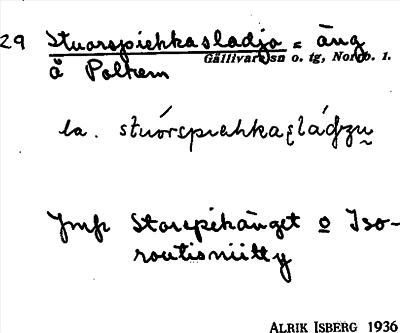 29 Stuorspiehkasladjo = äng
Gällivare sn o. tg, Norrb. l.
å Polkem
la. stuórspiehkaʂláʤu̬
Jmfr Storspikänget o Iso-
routioniitty
ALRIK ISBERG 1936